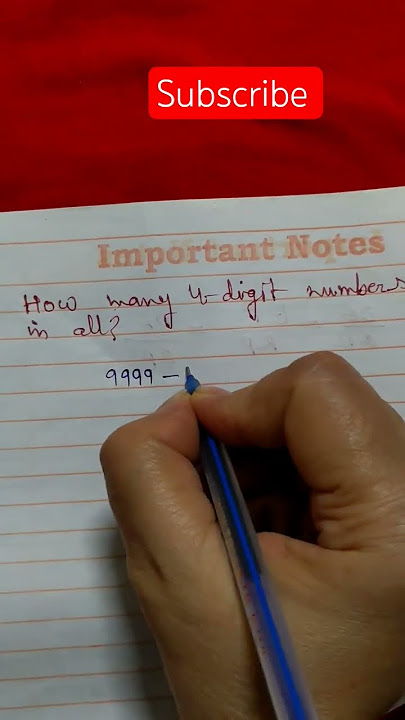 Subscribe
Important Notes
How many 4-digit numbers
in all?
9999 –